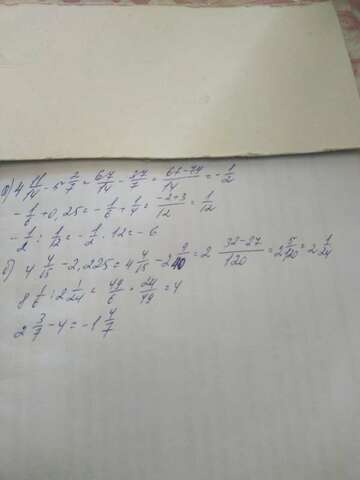 а) 4 11/14 - 5 2/7 = 67/14 - 37/7 = 67-74/14 = -1/2
-1/6 + 0,25 = -1/6 + 1/4 = -2+3/12 = 1/12
-1/2 : 1/12 = -1/2 · 12 = -6
б) 4 4/15 - 2,225 = 4 4/15 - 2 9/40 = 2 32-27/120 = 2 5/120 = 2 1/24
8 1/6 : 2 1/24 = 49/6 · 24/49 = 4
2 3/7 - 4 = -1 4/7